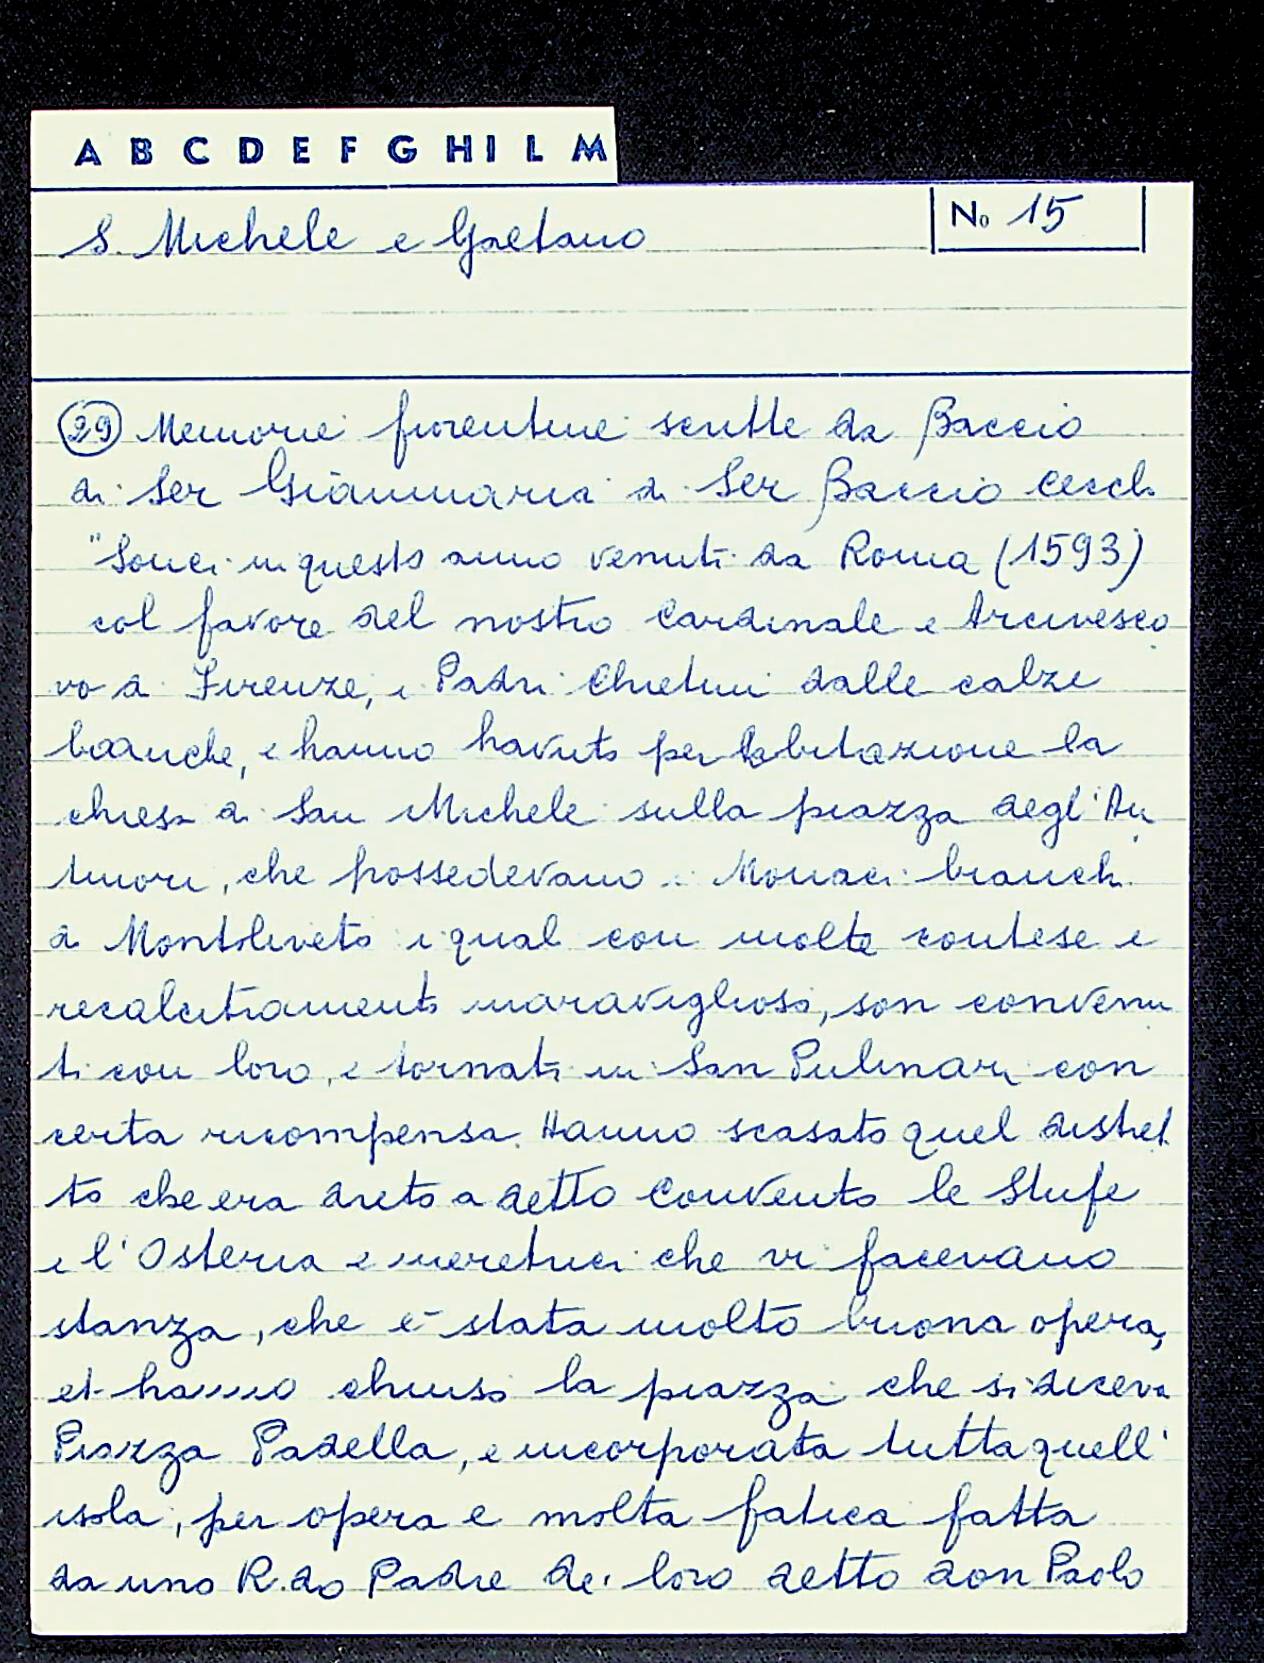 A B C D E F G H I L M
S. Michele e Gaetano
No 15
(29) Memorie fiorentine scritte da Baccio
di Ser Giammaria di Ser Baccio Cecchi
"Sonci in questo anno venuti da Roma (1593)
col favore del nostro Cardinale e Arcivesco
vo di Firenze, i Padri Chietini dalle calze
bianche, e hanno havuto per habitazione la
chiesa di San Michele sulla piazza degl'An
tinori, che possedevano i Monaci bianchi
di Montoliveto i quali con molte contese e
recalcitramenti maravigliosi, son convenu
ti con loro, e tornati in San Pulinari con
certa ricompensa. Hanno scasato quel distret
to che era dreto a detto Convento le Stufe
e l'Osteria e meretrici che vi facevano
stanza, che è stata molto buona opera,
et hanno chiuso la piazza che si diceva
Piazza Padella, e incorporata tutta quell'
isola, per opera e molta fatica fatta
da uno R.do Padre dei loro detto don Paolo